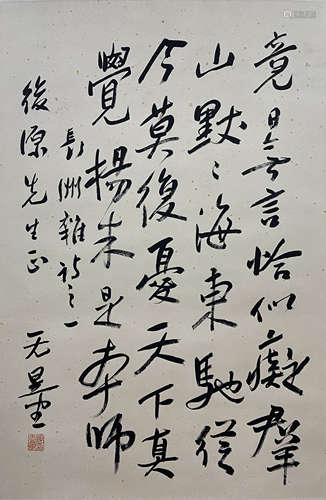 竟日无言恰似癡群
山默〻海東馳從
今莫復憂天下真
覺楊朱是本師
長洲雜詩之一
後源先生正
无量